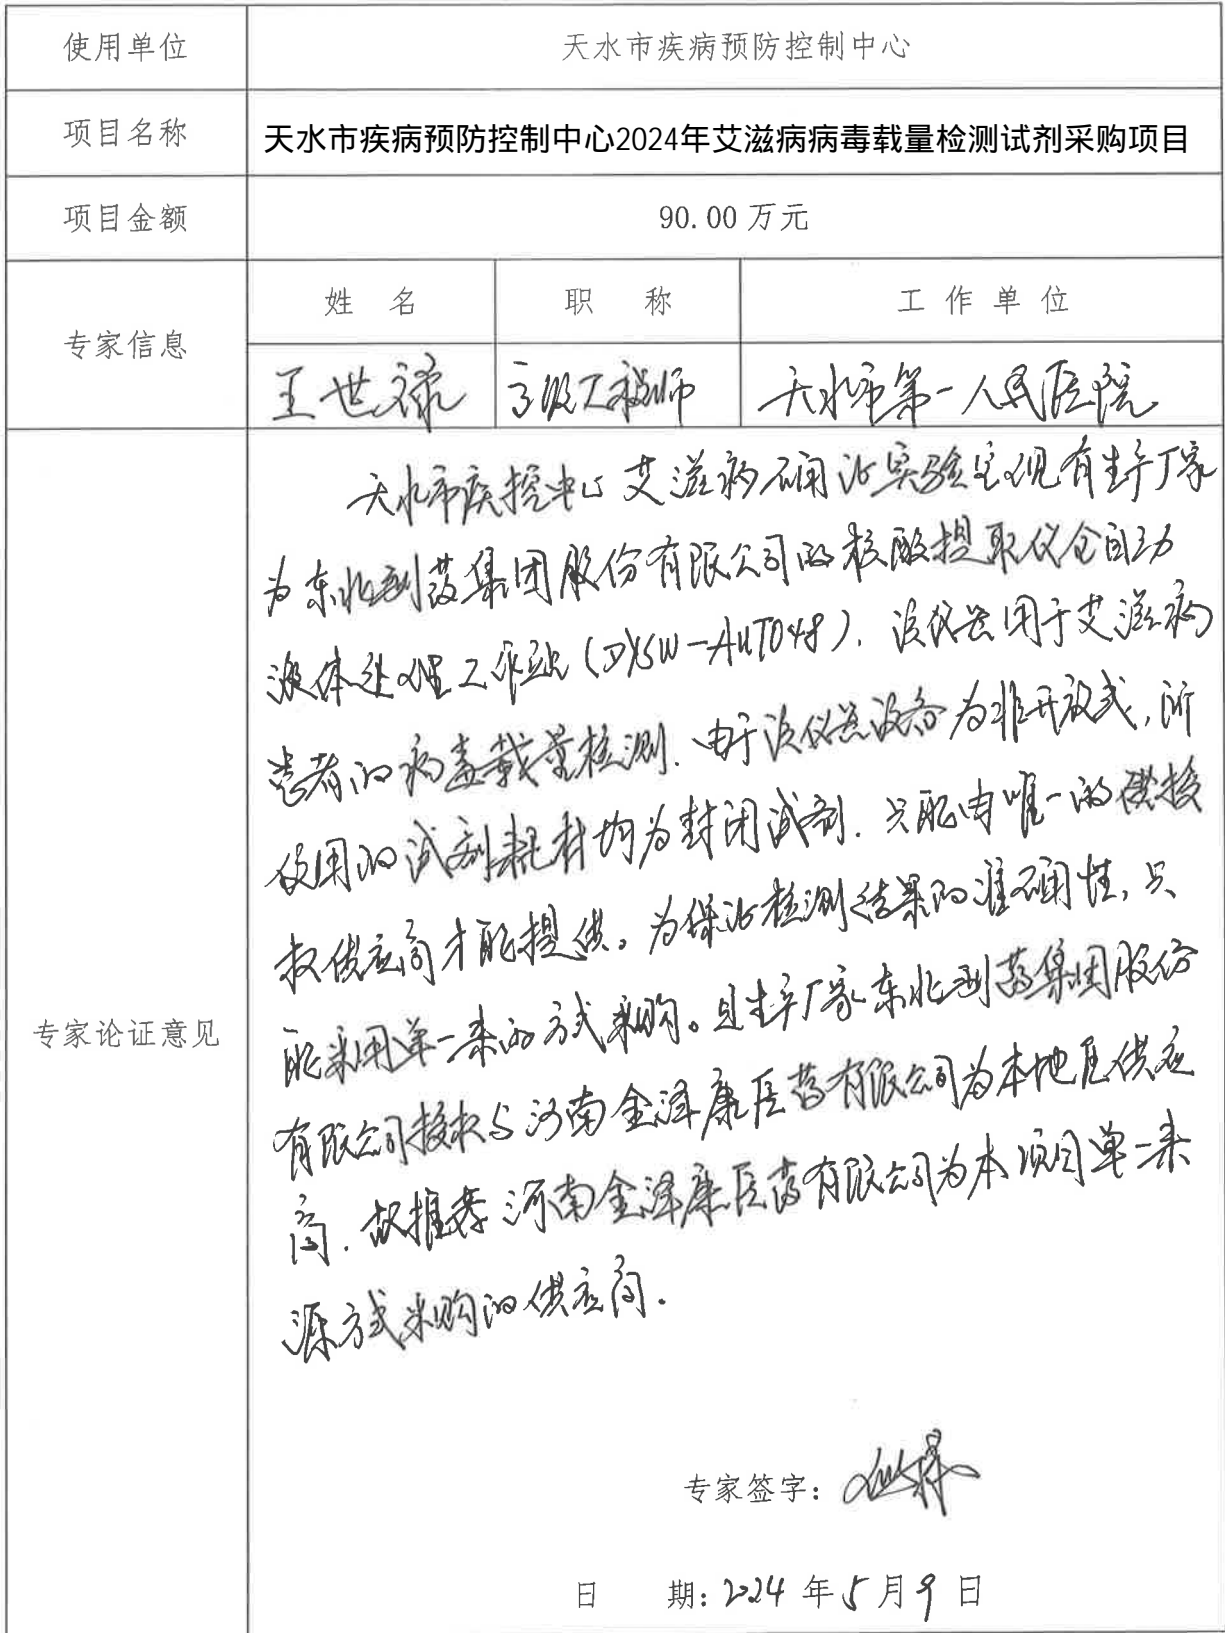 使用单位 天水市疾病预防控制中心
项目名称 天水市疾病预防控制中心2024年艾滋病病毒载量检测试剂采购项目
项目金额 90.00 万元
专家信息 姓 名 职 称 工 作 单 位
王世禄 高级工程师 天水市第一人民医院
专家论证意见
天水市疾控中心艾滋病确证实验室现有生产厂家
为东北制药集团股份有限公司的核酸提取仪全自动
液体处理工作站(DXSW-AUTO48). 该仪器用于艾滋病
患者的病毒载量检测. 由于该仪器设备为非开放式,所
使用的试剂耗材均为封闭试剂. 只能由唯一的供授
权供应商才能提供。为保证检测结果的准确性,只
能采用单一来的方式采购。且生产厂家东北制药集团股份
有限公司授权与河南金泽康医药有限公司为本地区供应
商. 故推荐河南金泽康医药有限公司为本项目单一来
源方式采购的供应商.
专家签字:
日 期: 2024 年 5 月 9 日